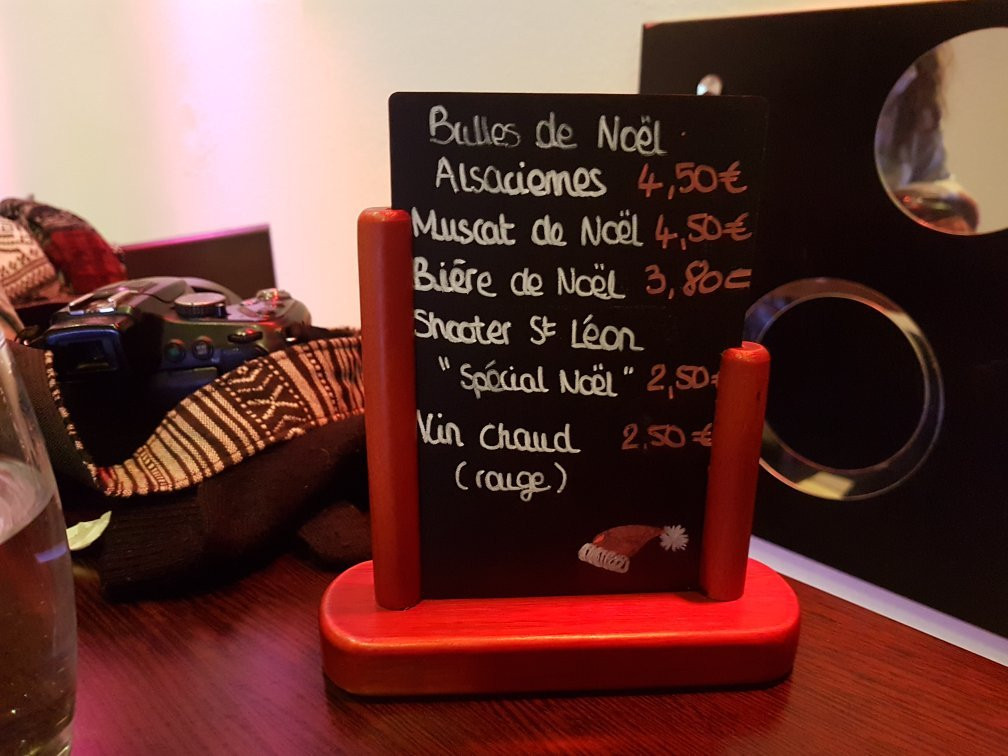 Bulles de Noël
Alsaciennes 4,50€
Muscat de Noël 4,50€
Bière de Noël 3,80€
Shooter St Léon
"Spécial Noël" 2,50€
Vin chaud 2,50€
(rouge)